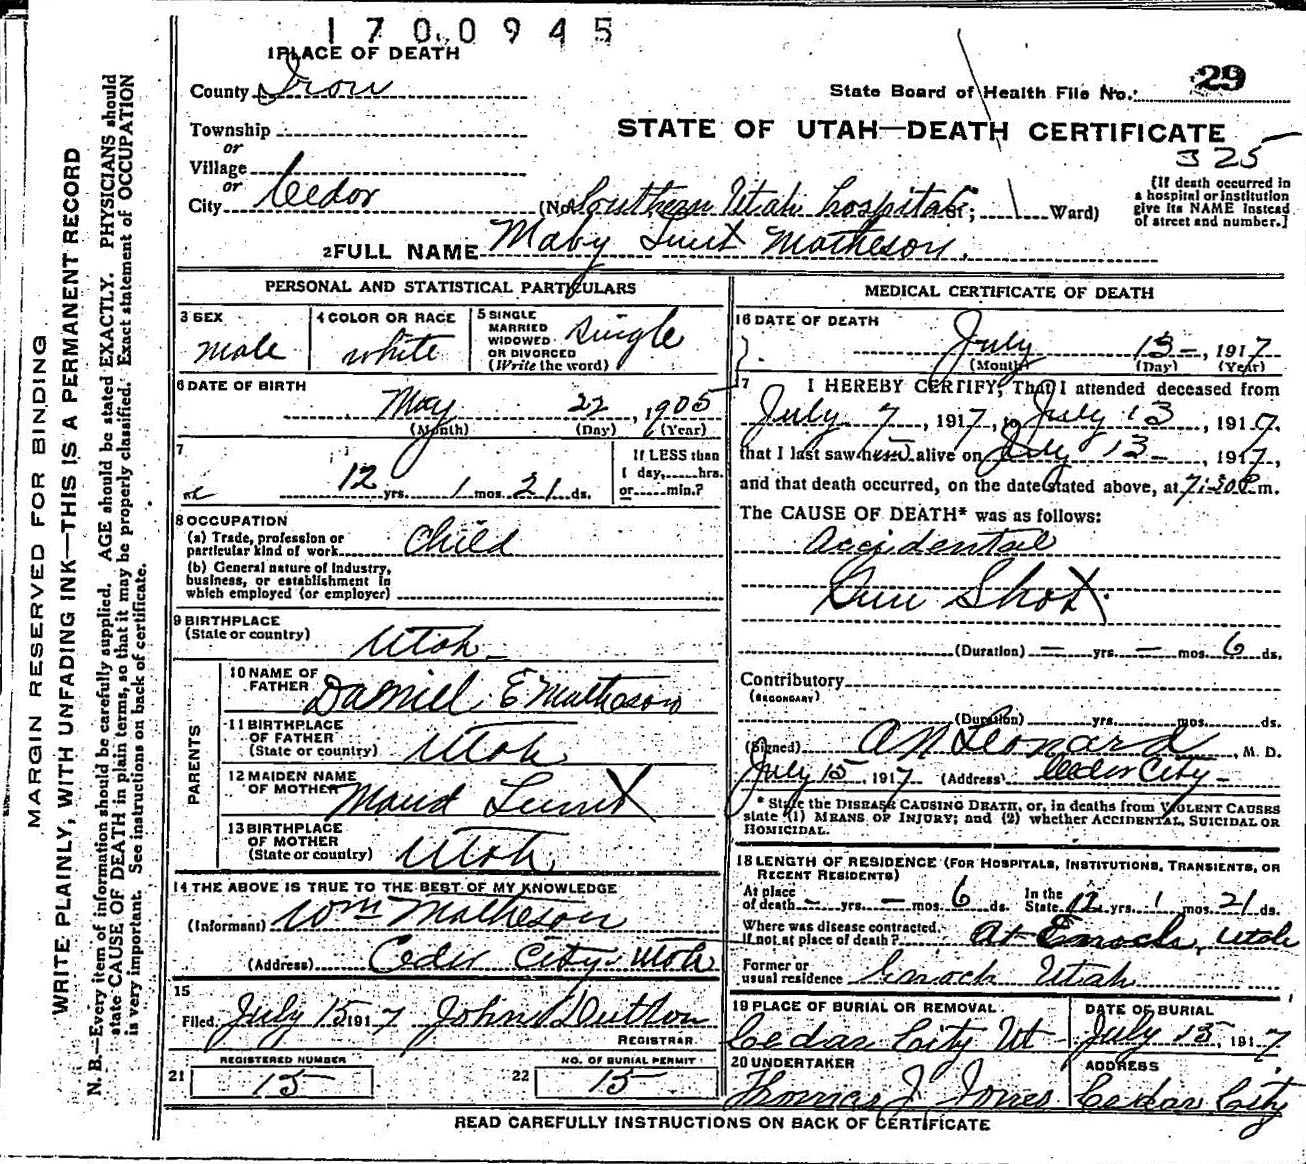 1700945
1 PLACE OF DEATH
County Iron
State Board of Health File No. 29
Township
or
STATE OF UTAH—DEATH CERTIFICATE
325
Village
or
City Cedor
(No. Southern Utah hospital St; Ward)
[If death occurred in
a hospital or institution
give its NAME instead
of street and number.]
2 FULL NAME Maby Lunt Matheson.
PERSONAL AND STATISTICAL PARTICULARS
3 SEX
male
4 COLOR OR RACE
white
5 SINGLE
MARRIED
WIDOWED
OR DIVORCED
(Write the word)
single
6 DATE OF BIRTH
May 22, 1905
(Month) (Day) (Year)
7
12 yrs. 1 mos. 21 ds.
If LESS than
1 day, hrs.
or min.?
8 OCCUPATION
(a) Trade, profession or
particular kind of work child
(b) General nature of Industry,
business, or establishment in
which employed (or employer)
9 BIRTHPLACE
(State or country)
Utah
PARENTS
10 NAME OF
FATHER Daniel E Matheson
11 BIRTHPLACE
OF FATHER
(State or country) Utah
12 MAIDEN NAME
OF MOTHER Maud Lunt
13 BIRTHPLACE
OF MOTHER
(State or country) Utah
14 THE ABOVE IS TRUE TO THE BEST OF MY KNOWLEDGE
(Informant) Wm Matheson
(Address) Ceder City Utah
15
Filed July 15 1917 John Dutton
REGISTRAR
REGISTERED NUMBER
21 15
NO. OF BURIAL PERMIT
22 15
MEDICAL CERTIFICATE OF DEATH
16 DATE OF DEATH
July 13 —, 1917
(Month) (Day) (Year)
17 I HEREBY CERTIFY, That I attended deceased from
July 7, 1917, to July 13, 1917.
that I last saw him alive on July 13, 1917,
and that death occurred, on the date stated above, at 7:30 P.m.
The CAUSE OF DEATH* was as follows:
Accidental
Gun Shot.
(Duration) — yrs. — mos. 6 ds.
Contributory
(SECONDARY)
(Duration) yrs. mos. ds.
(Signed) A N Leonard, M. D.
July 15, 1917 (Address) Ceder City —
* State the DISEASE CAUSING DEATH, or, in deaths from VIOLENT CAUSES
state (1) MEANS OF INJURY; and (2) whether ACCIDENTAL, SUICIDAL OR
HOMICIDAL.
18 LENGTH OF RESIDENCE (FOR HOSPITALS, INSTITUTIONS, TRANSIENTS, OR
RECENT RESIDENTS)
At place
of death — yrs. — mos. 6 ds.
In the
State 12 yrs. 1 mos. 21 ds.
Where was disease contracted,
If not at place of death? At Enoch, Utah
Former or
usual residence Enoch Utah
19 PLACE OF BURIAL OR REMOVAL
Cedar City Ut
DATE OF BURIAL
July 15, 1917
20 UNDERTAKER
Thomas J. Jones
ADDRESS
Cedar City
READ CAREFULLY INSTRUCTIONS ON BACK OF CERTIFICATE
MARGIN RESERVED FOR BINDING
WRITE PLAINLY, WITH UNFADING INK—THIS IS A PERMANENT RECORD
N. B.—Every item of information should be carefully supplied. AGE should be stated EXACTLY. PHYSICIANS should
state CAUSE OF DEATH in plain terms, so that it may be properly classified. Exact statement of OCCUPATION
is very important. See instructions on back of certificate.